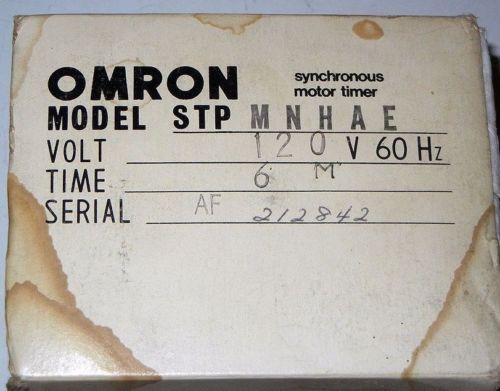 OMRON synchronous
motor timer
MODEL STP MNHAE
VOLT 120 V 60 Hz
TIME 6 M
SERIAL AF 212842